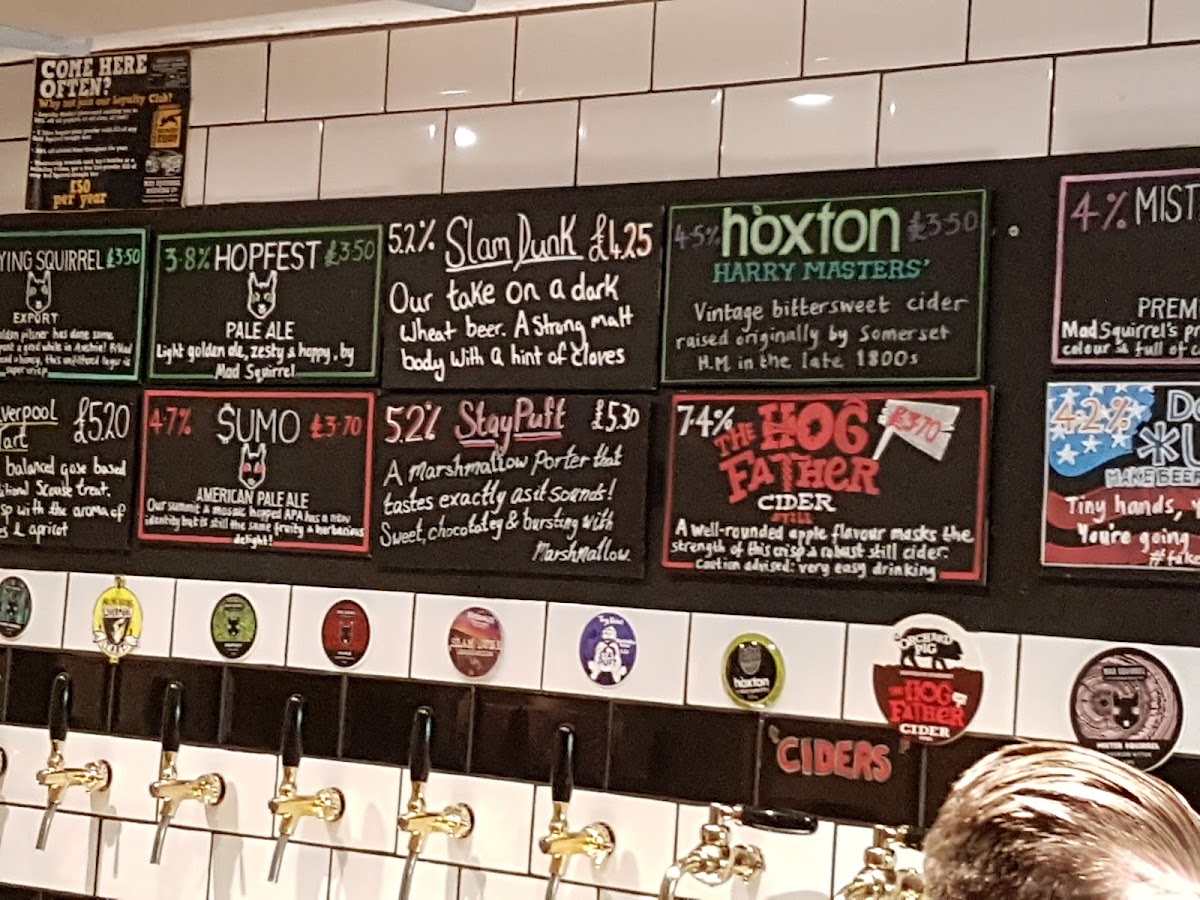 COME HERE
OFTEN?
Why not join our Loyalty Club?
£50
per year
YING SQUIRREL £3·50
EXPORT
super crisp
3·8% HOPFEST £3·50
PALE ALE
Light golden ale, zesty & hoppy, by
Mad Squirrel
5.2% Slam Dunk £4.25
Our take on a dark
Wheat beer. A strong malt
body with a hint of cloves
4·5% hoxton £3·50
HARRY MASTERS'
Vintage bittersweet cider
raised originally by Somerset
H.M. in the late 1800s
4% MIST
PREM
Mad Squirrel's pr
colour & full of c
verpool £5.20
Tart
balanced gose based
itional Scouse treat.
sp with the aroma of
& apricot
4·7% $UMO £3·70
AMERICAN PALE ALE
Our summit & mosaic hopped APA has a new
identity but is still the same fruity & herbacious
delight!
5.2% Stay Puft £5.30
A Marshmallow Porter that
tastes exactly as it sounds!
Sweet, chocolatey & bursting with
Marshmallow.
7·4% THE HOG FATHER £3·70
CIDER
STILL
A well-rounded apple flavour masks the
strength of this crisp & robust still cider
Caution advised: very easy drinking
4·2% D
*U
MAKE BEE
Tiny hands,
You're going
#fake
hoxton
ORCHARD PIG
THE HOG
FATHER
CIDER
MISTER SQUIRREL
CIDERS